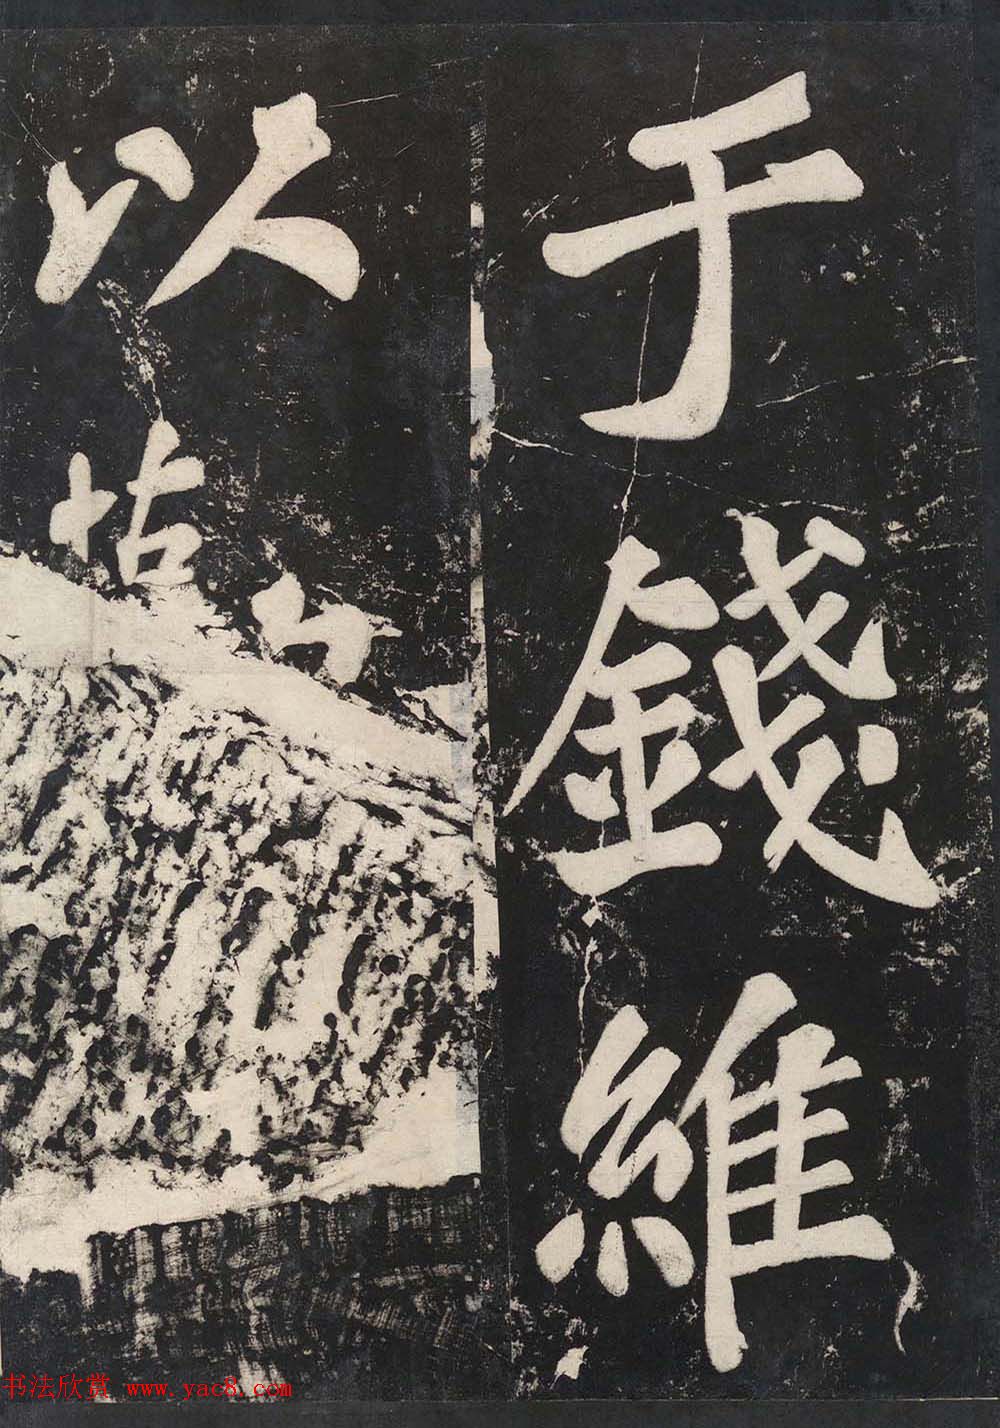 于錢維
以帖
书法欣赏 www.yac8.com